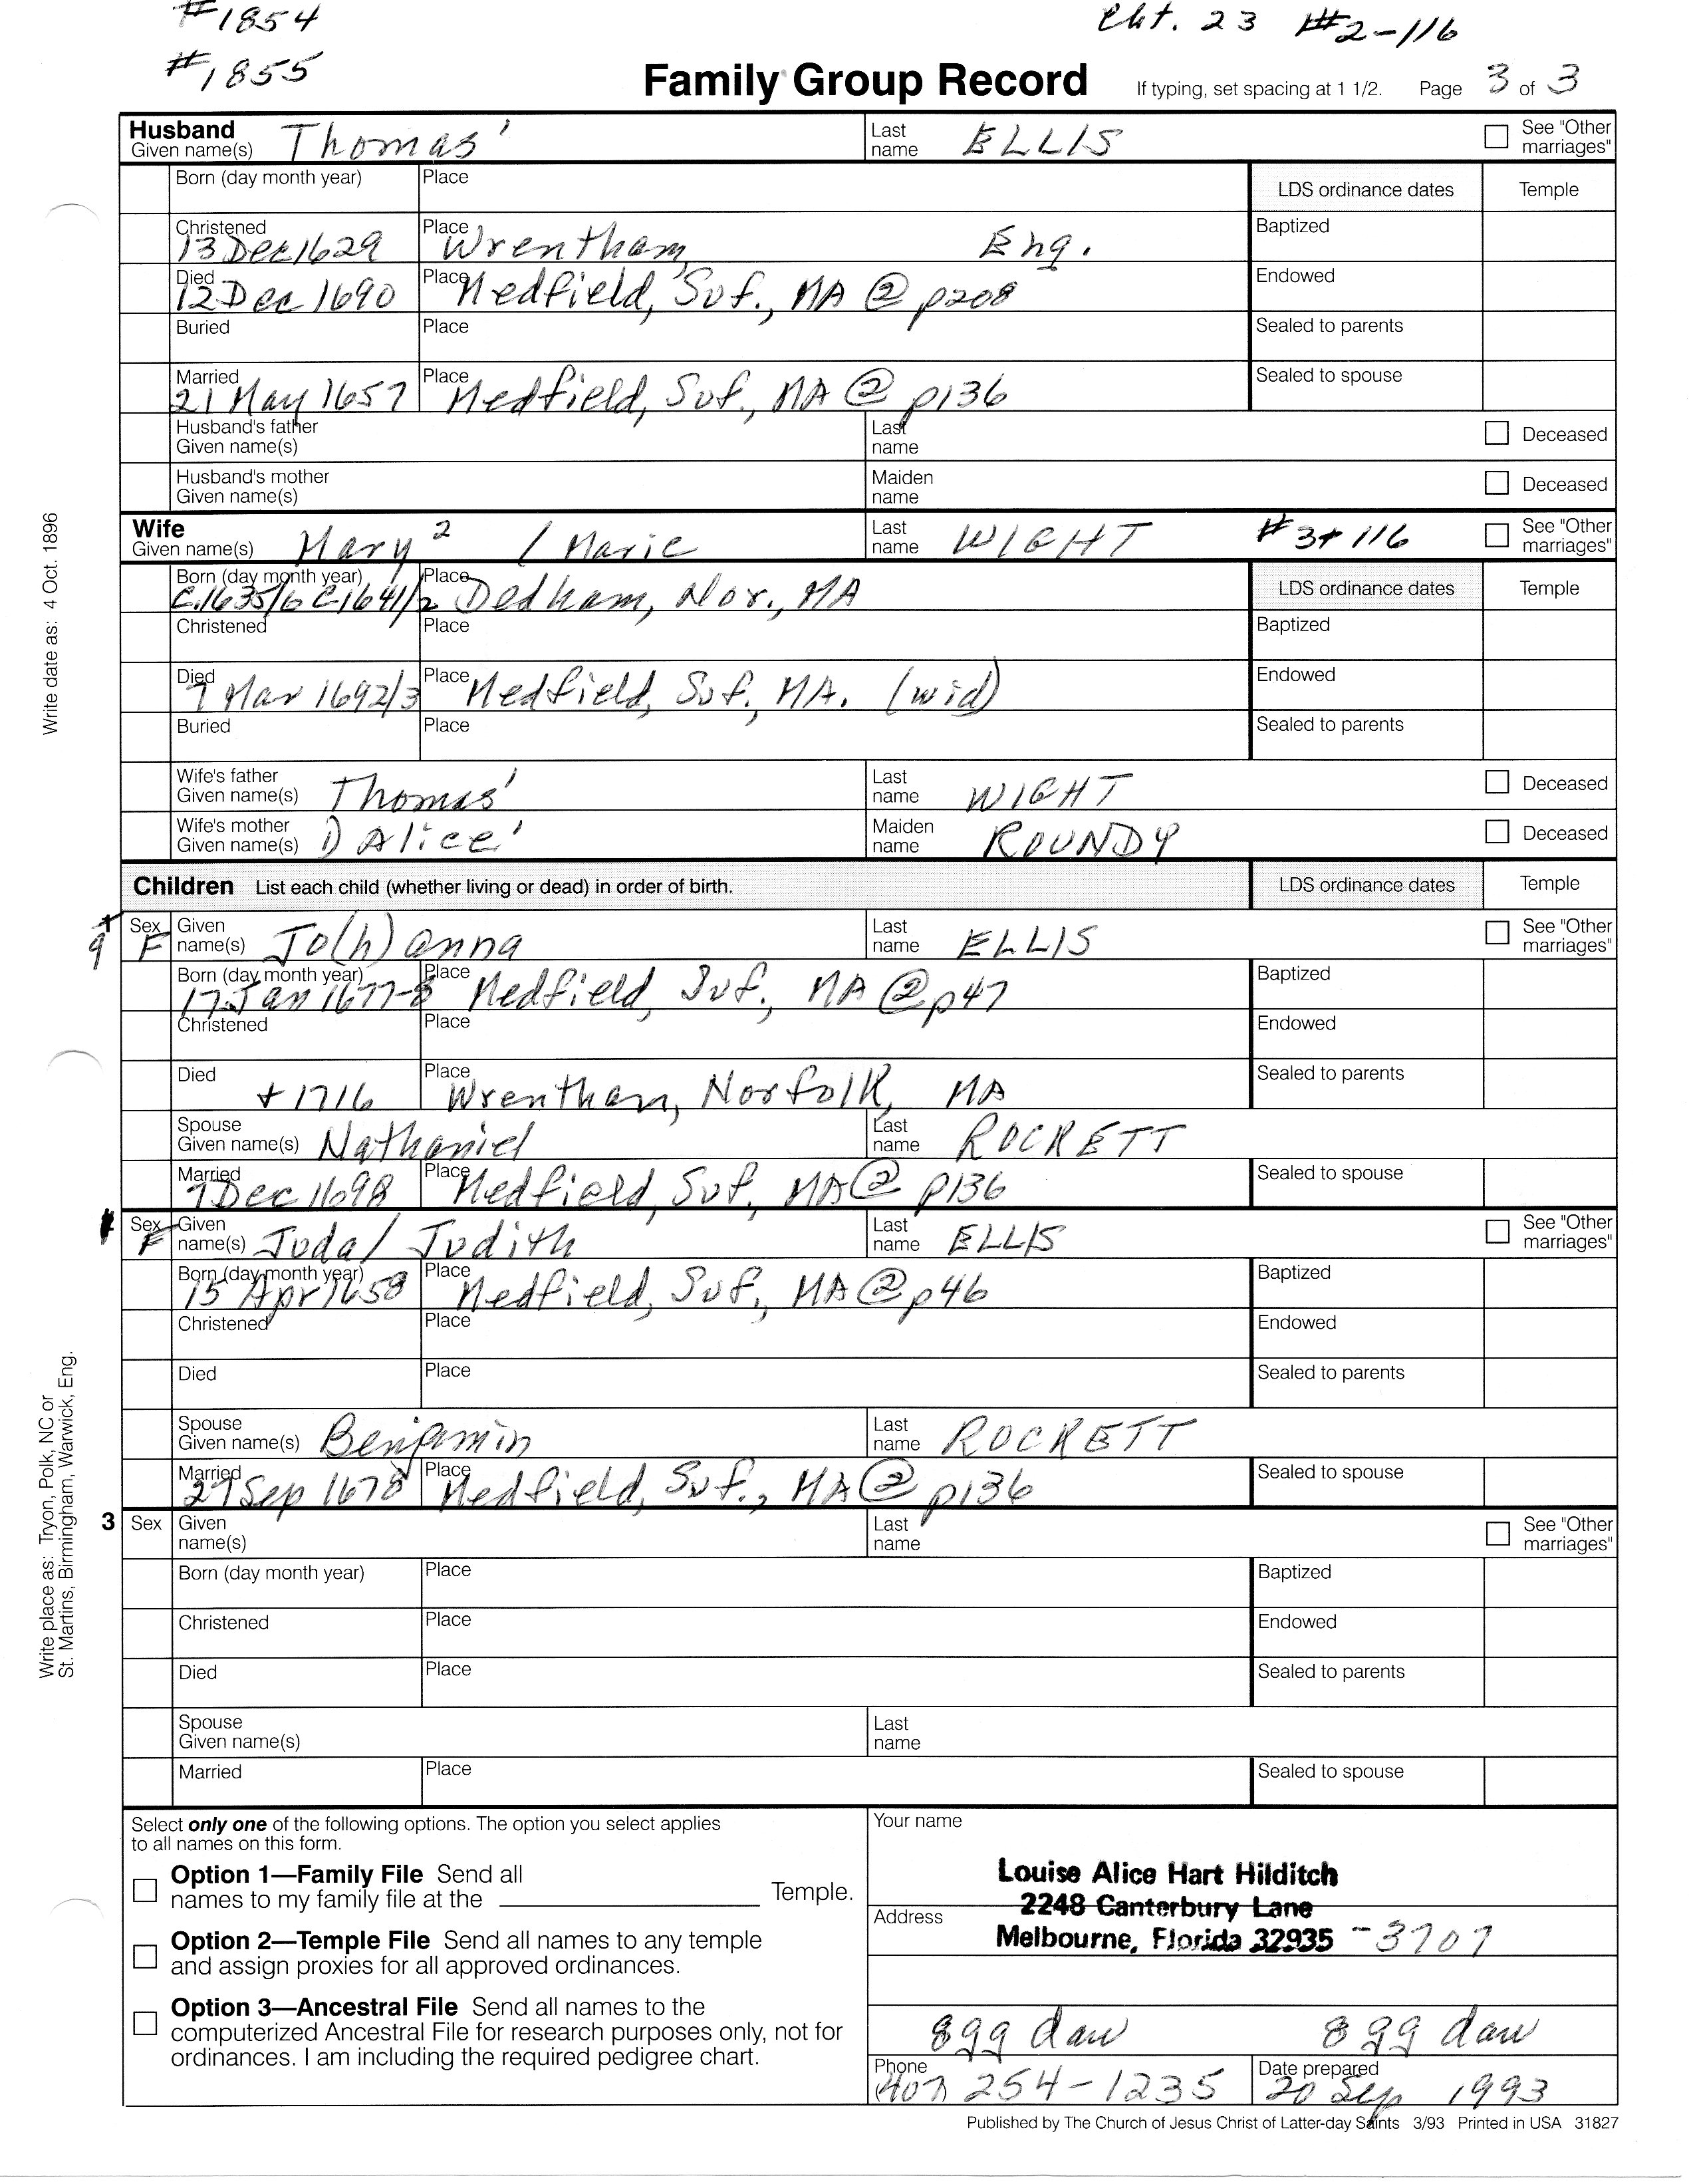 #1854
#1855
Cht. 23 #2-116
Family Group Record If typing, set spacing at 1 1/2. Page 3 of 3
Husband Given name(s) Thomas¹ Last name ELLIS See "Other marriages"
Born (day month year) Place LDS ordinance dates Temple
Christened 13 Dec 1629 Place Wrentham, Eng. Baptized
Died 12 Dec 1690 Place Medfield, Suf., MA @ p208 Endowed
Buried Place Sealed to parents
Married 21 May 1657 Place Medfield, Suf., MA @ p136 Sealed to spouse
Husband's father Given name(s) Last name Deceased
Husband's mother Given name(s) Maiden name Deceased
Wife Given name(s) Mary² / Marie Last name WIGHT #3+ 116 See "Other marriages"
Born (day month year) C.1635/6 C1641/2 Place Dedham, Nor., MA LDS ordinance dates Temple
Christened Place Baptized
Died 7 Mar 1692/3 Place Medfield, Suf., MA. (wid) Endowed
Buried Place Sealed to parents
Wife's father Given name(s) Thomas¹ Last name WIGHT Deceased
Wife's mother Given name(s) 1) Alice¹ Maiden name ROUNDY Deceased
Children List each child (whether living or dead) in order of birth. LDS ordinance dates Temple
9 Sex F Given name(s) Jo(h)anna Last name ELLIS See "Other marriages"
Born (day month year) 17 Jan 1677-8 Place Medfield, Suf., MA @ p47 Baptized
Christened Place Endowed
Died + 1716 Place Wrentham, Norfolk, MA Sealed to parents
Spouse Given name(s) Nathaniel Last name ROCKETT
Married 7 Dec 1698 Place Medfield, Suf., MA @ p136 Sealed to spouse
Sex F Given name(s) Juda/ Judith Last name ELLIS See "Other marriages"
Born (day month year) 15 Apr 1658 Place Medfield, Suf., MA @ p46 Baptized
Christened Place Endowed
Died Place Sealed to parents
Spouse Given name(s) Benjamin Last name ROCKETT
Married 27 Sep 1678 Place Medfield, Suf., MA @ p136 Sealed to spouse
3 Sex Given name(s) Last name See "Other marriages"
Born (day month year) Place Baptized
Christened Place Endowed
Died Place Sealed to parents
Spouse Given name(s) Last name
Married Place Sealed to spouse
Select only one of the following options. The option you select applies
to all names on this form.
Option 1—Family File Send all
names to my family file at the Temple.
Option 2—Temple File Send all names to any temple
and assign proxies for all approved ordinances.
Option 3—Ancestral File Send all names to the
computerized Ancestral File for research purposes only, not for
ordinances. I am including the required pedigree chart.
Your name
Louise Alice Hart Hilditch
2248 Canterbury Lane
Address
Melbourne, Florida 32935 -3707
8gg dau 8gg dau
Phone 407 254-1235 Date prepared 20 Sep 1993
Published by The Church of Jesus Christ of Latter-day Saints 3/93 Printed in USA 31827
Write date as: 4 Oct. 1896
Write place as: Tryon, Polk, NC or
St. Martins, Birmingham, Warwick, Eng.